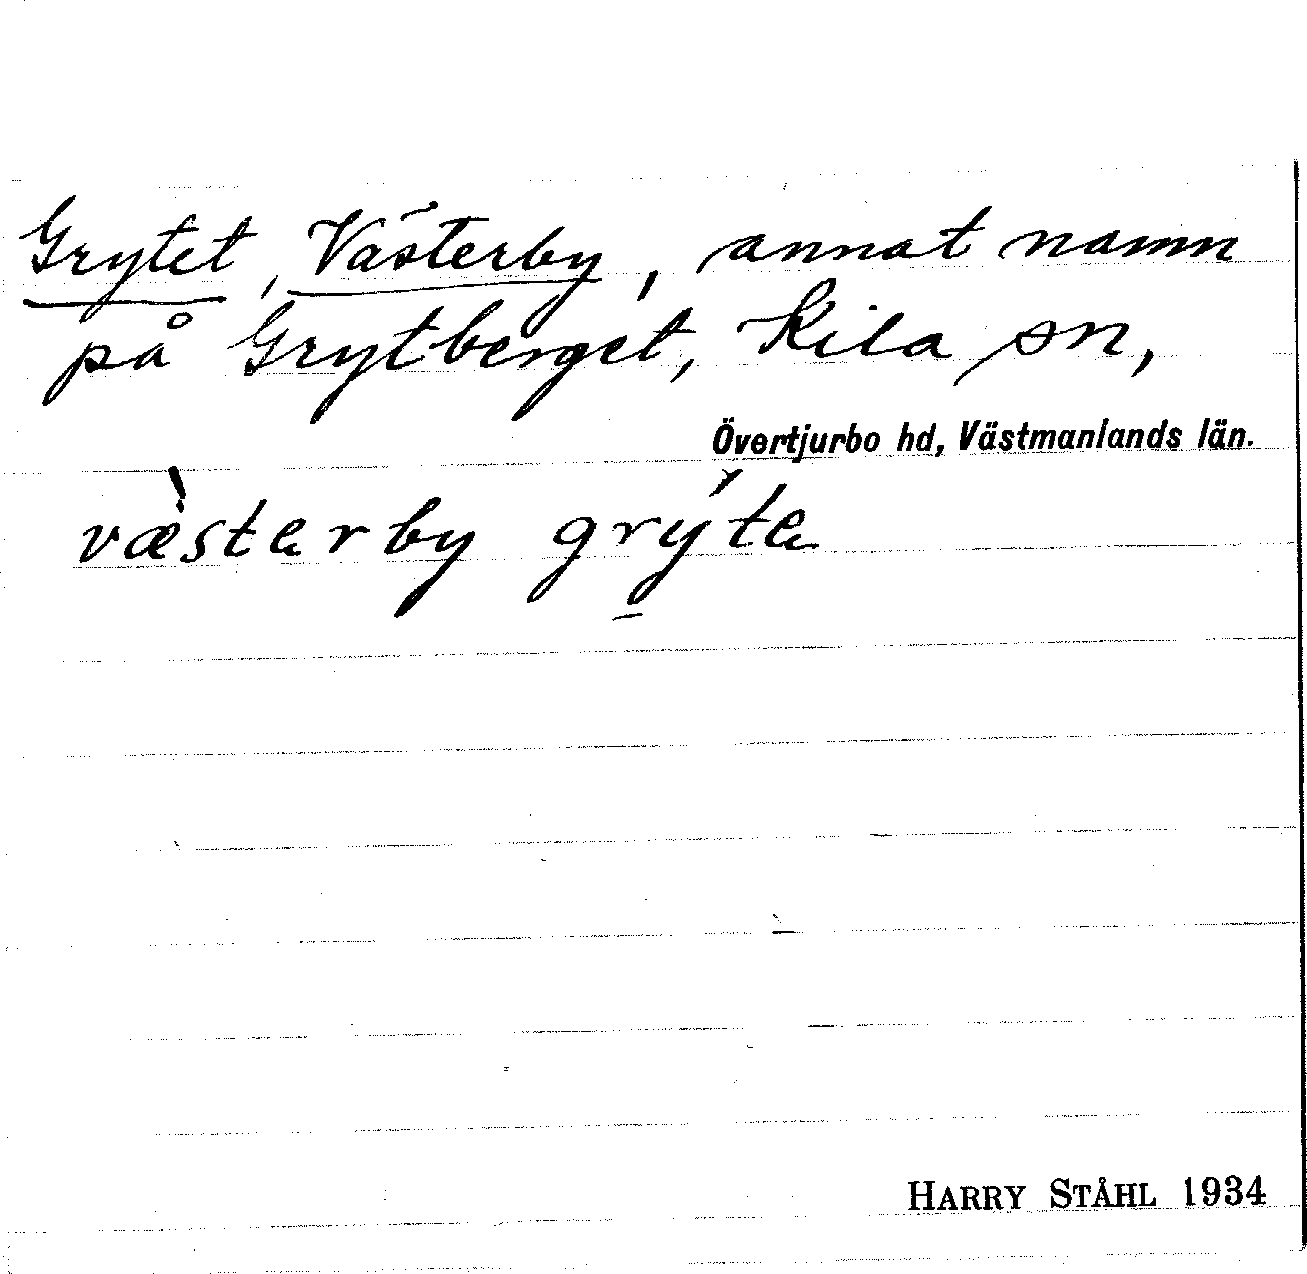 Grytet, Västerby, annat namn
på Grytberget, Kila sn,
Övertjurbo hd, Västmanlands län.
væ̀starby grýta
HARRY STÅHL 1934